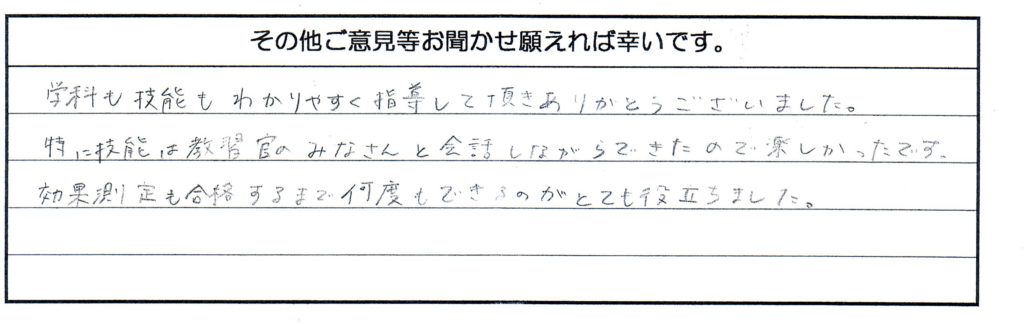 その他ご意見等お聞かせ願えれば幸いです。
学科も技能もわかりやすく指導して頂きありがとうございました。
特に技能は教習官のみなさんと会話しながらできたので楽しかったです。
効果測定も合格するまで何度もできるのがとても役立ちました。